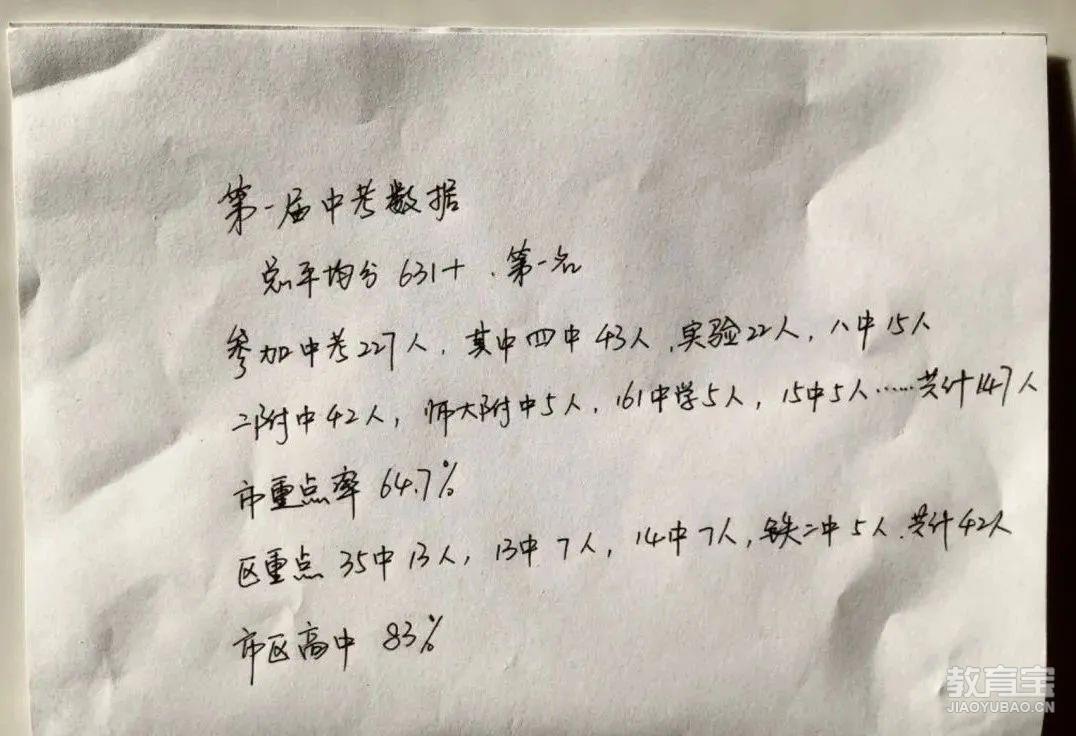 第一届中考数据
总平均分 631+ .第一名
参加中考227人,其中四中43人,实验22人,八中15人
二附中42人,师大附中5人,161中学5人,15中5人……共计147人
市重点率 64.7%
区重点 35中13人,13中7人,14中7人,铁二中5人.共计42人
市区高中 83%
教育宝
JIAOYUBAO.CN